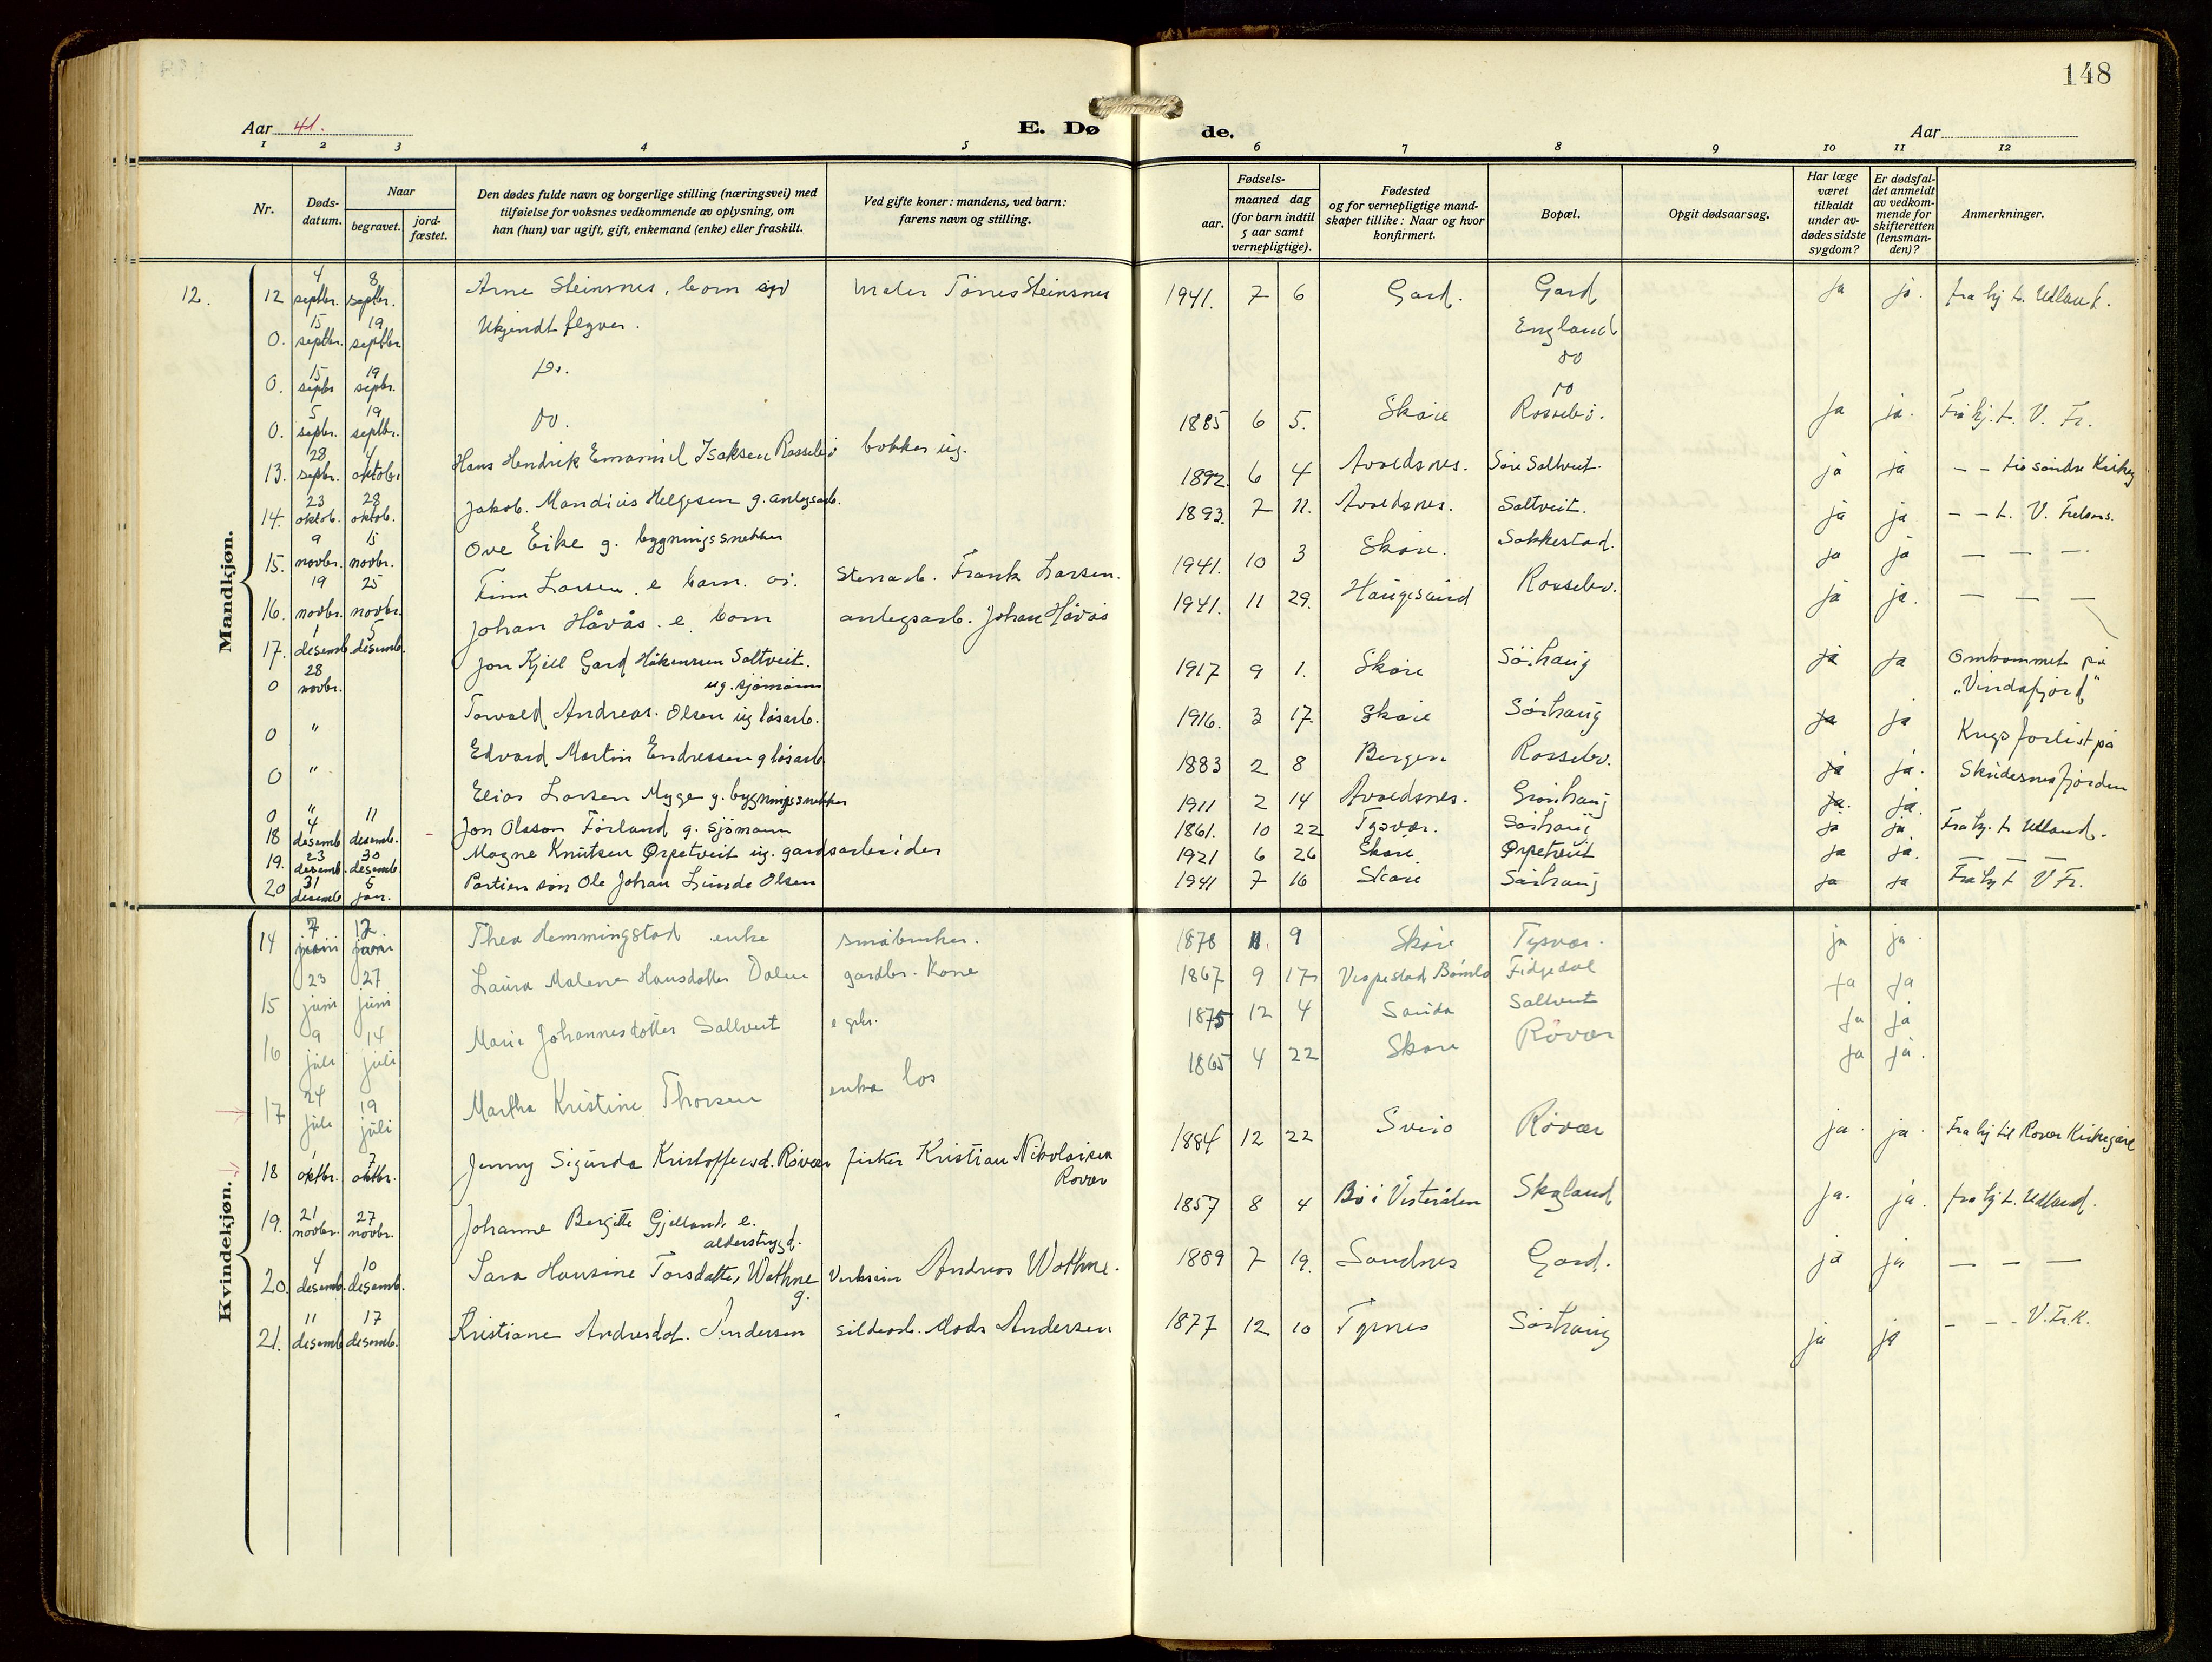 148
Aar 41.
E. Dø
de.
Aar
1 2 3 4 5 6 7 8 9 10 11 12
Nr.
Døds-
datum.
Naar
begravet.
jord-
fæstet.
Den dødes fulde navn og borgerlige stilling (næringsvei) med
tilføielse for voksnes vedkommende av oplysning, om
han (hun) var ugift, gift, enkemand (enke) eller fraskilt.
Ved gifte koner: mandens, ved barn:
farens navn og stilling.
Fødsels-
aar.
maaned dag
(for barn indtil
5 aar samt
vernepligtige).
Fødested
og for vernepligtige mand-
skaper tillike: Naar og hvor
konfirmert.
Bopæl.
Opgit dødsaarsag.
Har læge
været
tilkaldt
under av-
dødes sidste
sygdom?
Er dødsfal-
det anmeldt
av vedkom-
mende for
skifteretten
(lensman-
den)?
Anmerkninger.
Mandkjøn.
12. 12 4 septbr. 8 septbr. Arne Steinsnes, barn Maler Tønes Steinsnes 1941. 7 6 Gard. Gard ja ja. fra hj t. Udland.
0. 15 septbr. 19 septbr. Ukjendt flyver. England
0. 15 septbr 19 septbr. Do. do
0. 5 septbr. 19 septbr. do. do
13. 28 septbr. 4 oktobr. Hans Hendrik Emanuel Isaksen Rossebø bøkker ug. 1885 6 5. Skåre Rossebø. ja ja. Fra hj. t. V. Fr.
14. 23 oktob. 28 oktob. Jakob Mandius Helgesen g. anlegsarb. 1892. 6 4 Avaldsnes. Søre Saltveit. ja ja – – tio søndre Kirkeg
15. 9 novbr. 15 novbr. Ove Eike g. bygningssnekker 1893. 7 11. Avaldsnes. Saltveit. ja ja – – t. V. Frelsers.
16. 19 novbr. 25 novbr. Finn Larsen e barn Stenarb. Frank Larsen. 1941. 10 3 Skåre. Sakkestad. ja ja — — —
17. 1 desemb. 5 desemb. Johan Håvås. e. barn anlegsarb. Johan Håvås 1941. 11 29. Haugesund Rossebø. ja ja. — — —
0 28 novbr. Jon Kjell Gard Håkonsen Saltveit.
ug. sjømann 1917 9 1. Skåre Sørhaug ja ja Omkommet på
"Vindafjord"
0 " Torvald Andreas. Olsen ug løsarb. 1916. 3 17. Skåre Sørhaug ja ja Krigsforlist på
0 " Edvard Martin Endressen g løsarb 1883 2 8 Bergen Rossebø. ja ja. Skudesnesfjorden
0 " Elias Larsen Myge g. bygningssnekker 1911 2 14 Avaldsnes. Grønhaug ja. ja.
18 4 desemb 11 desemb. Jon Olsson Førland g. sjømann 1861. 10 22 Tysvær. Sørhaug ja ja Fra hj. t Udland.
19. 23 desemb. 30 desemb. Magne Knutsen Ørpetveit ug. gardsarbeider 1921 6 26 Skåre. Ørpetveit ja ja. — —
20 31 desemb 5 jan. Partien søn Ole Johan Lunde Olsen 1941 7 16 Skåre Sørhaug ja ja Fra hj t V Fr.
Kvindekjøn.
14 7 juni 12. juni Thea Hemmingstad enke småbruker. 1878 11. 9 Skåre Tysvær. ja ja.
15 23 juni 27 juni Laura Malene Hansdatter Dalen gardbr. Kone 1867 9 17 Vespestad Bømlo Fidgedal ja ja
16 9 juli 14 juli Marie Johannesdotter Saltveit e gbr. 1875 12 4 Sauda Saltveit ja ja
17 24 juli 19 juli Martha Kristine Thorsen enke los 1865 4 22 Skåre Røvær ja ja.
18 1 oktbr. 7 oktbr. Jenny Sigurda Kristoffersd. Røvær fisker Kristian Nikolaisen
Røvær 1884 12 22 Sveio Røvær ja. ja. Fra hj til Røvær Kirkegård
19. 21 novbr. 27 novbr. Johanne Bergitte Gjelland e.
alderstrygd. 1857 8 4 Bø i Visterålen Skeland ja. ja. fra hj t. Udland.
20. 4 desemb. 10 desemb. Sara Hansine Torsdatter Wathne
g. Verkseier Andreas Wathne. 1889 7 19. Sandnes Gard. ja ja — — —
21. 11 desemb 17 desemb. Kristiane Andresdot. Andersen sildearb. Mads Andersen 1877 12 10 Tysnes Sørhaug ja ja – – – V. Fr. K.